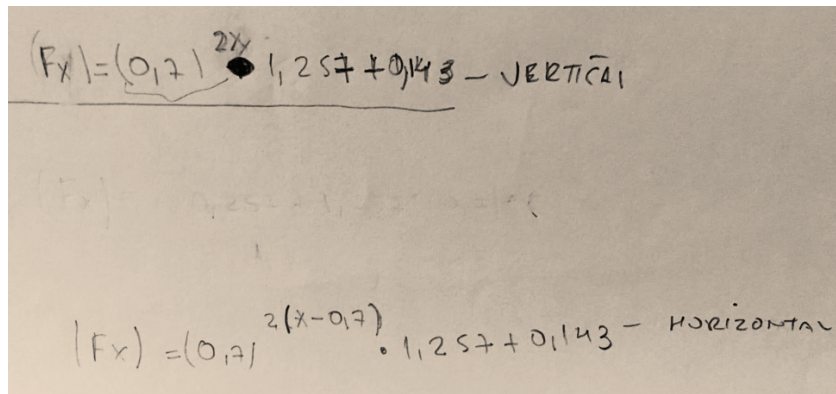 (Fx)=(0,7)^2x • 1,257+0,143 - VERTICAL
(Fx) =(0,7)^2(x-0,7) • 1,257+0,143 - HORIZONTAL